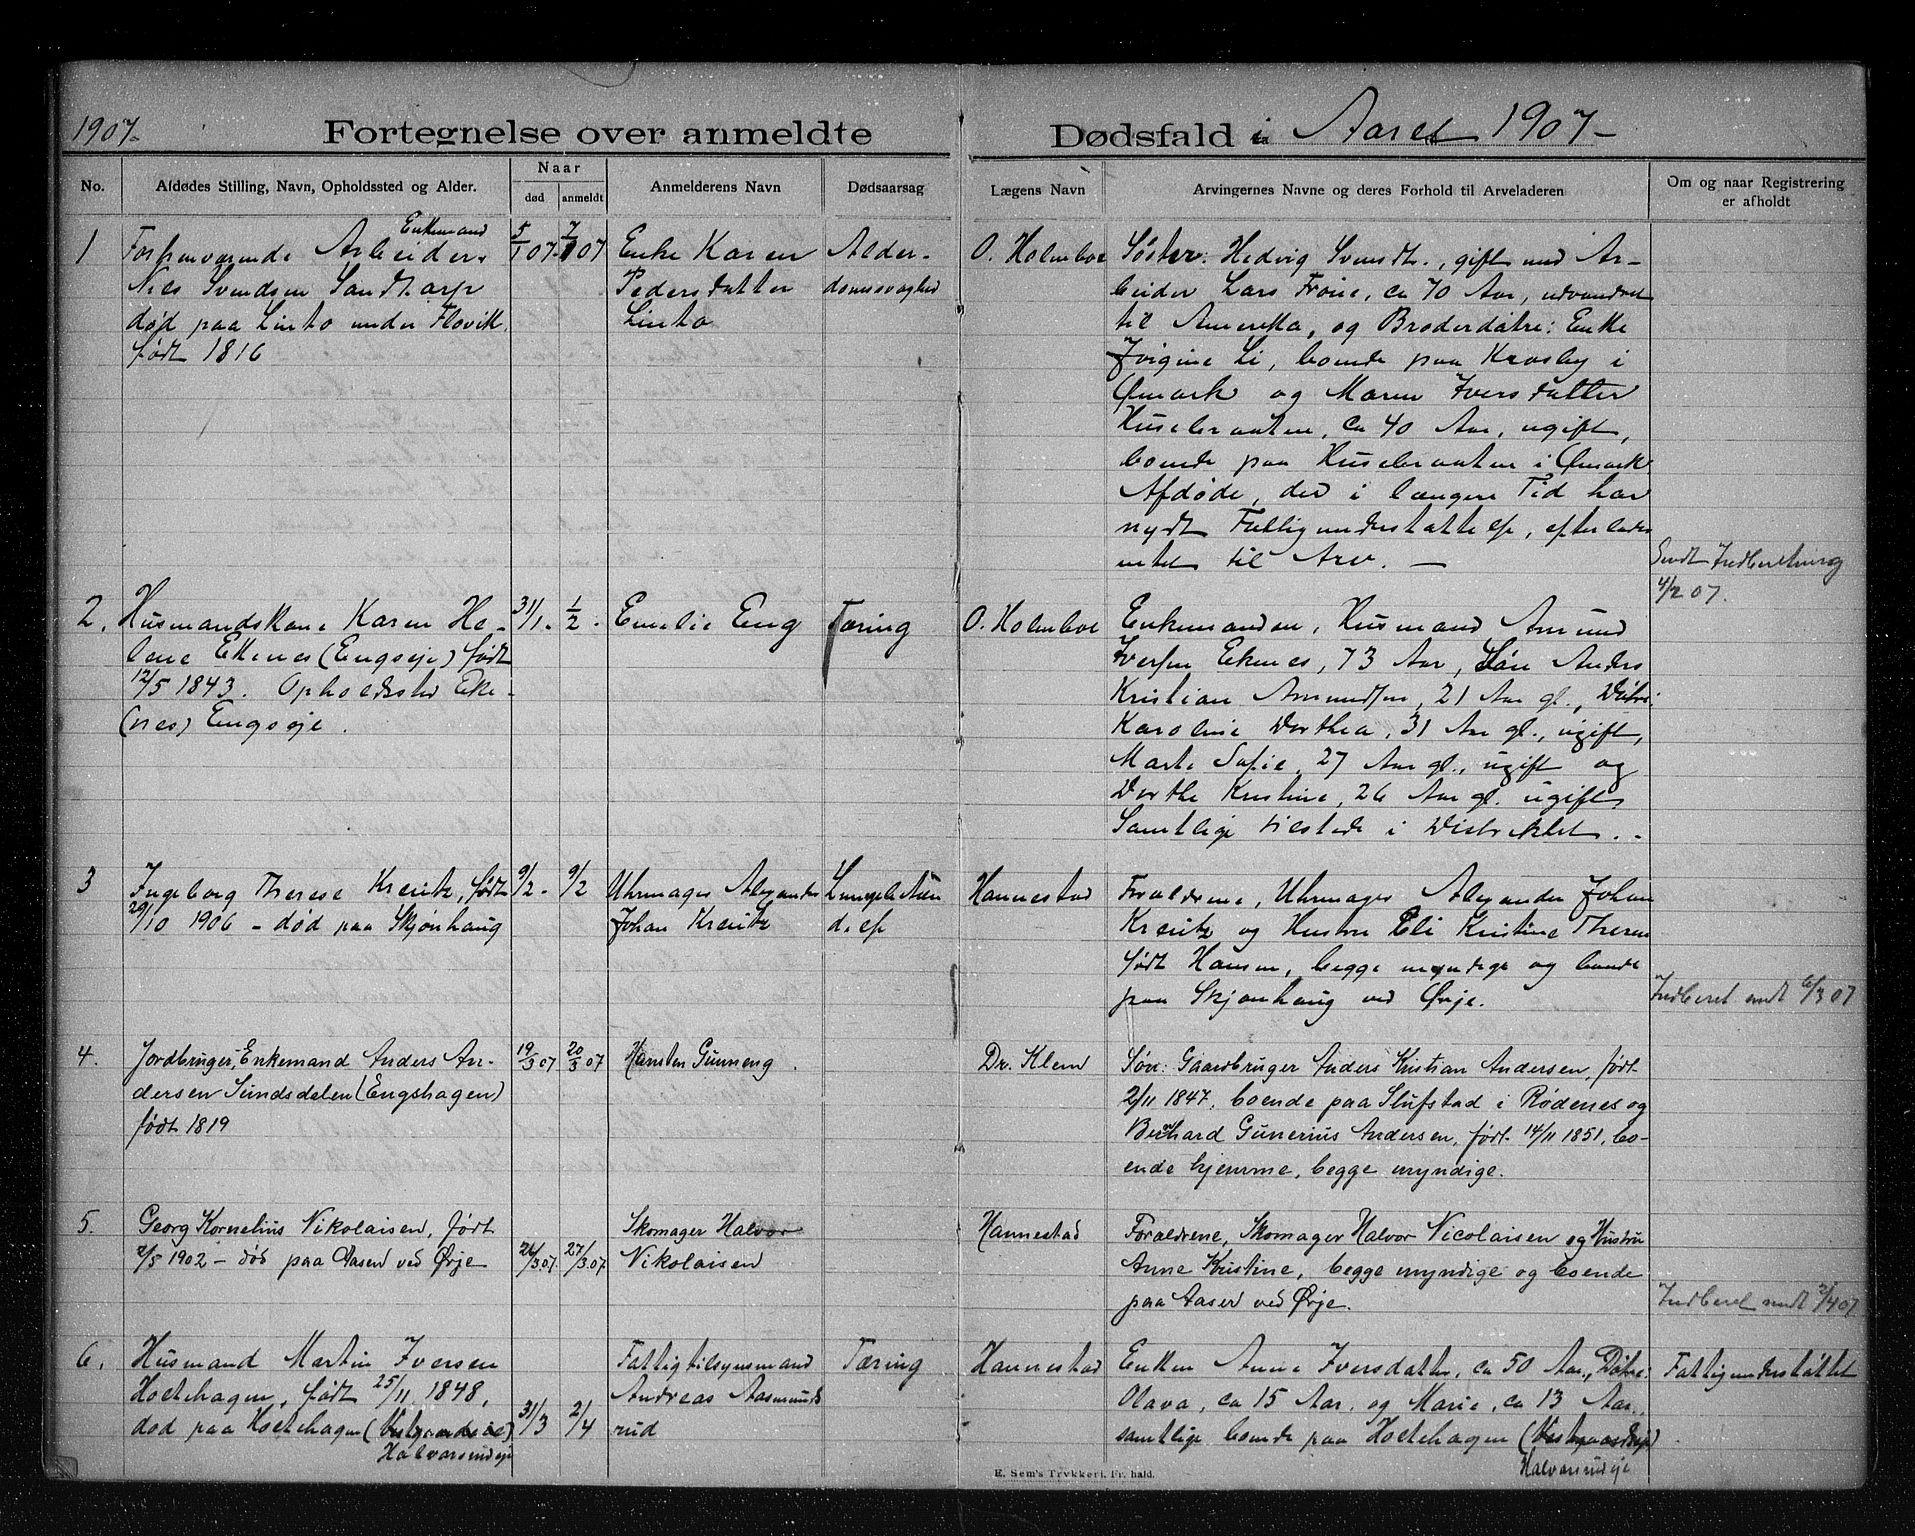 1907-
Fortegnelse over anmeldte Dødsfald i Aaret 1907-
No.
Afdødes Stilling, Navn, Opholdssted og Alder.
Naar
død
anmeldt
Anmelderens Navn
Dødsaarsag
Lægens Navn
Arvingernes Navne og deres Forhold til Arveladeren
Om og naar Registrering
er afholdt
1
Enkemand
Forhenværende Arbeider
Nils Svendsen Sandtorp
død paa Linto under Flovik.
født 1816
5/1 07.
7/1 07
Enke Karen
Pedersdatter
Linto
Alder-
domssvaghed
O. Holmboe
Søster: Hedvig Svendsdt., gift med Ar-
beider Lars Troie, ca 70 Aar, udvandret
til Amerika, og Broderdøtre: Enke
Jvigine Li, boende paa Krosby i
Ømark og Maren Iversdatter
Husebraaten, ca 40 Aar, ugift,
boende paa Husebraaten i Ømark
Afdøde, der i længere Tid har
nydt Fattigunderstøttelse, efterlader
intet til Arv. —
Sendt Indberetning
4/2 07.
2.
Husmandskone Karen He-
lene Ekenes (Engsøje) født
12/5 1843. Opholdssted Eke-
(nes) Engsøje.
31/1.
1/2.
Emelie Eng
Tæring
O. Holmboe
Enkemanden, Husmand Amund
Iversen Ekenes, 73 Aar, Søn Anders
Kristian Amundsen, 21 Aar gl., Døtre:
Karoline Dorthea, 31 Aar gl., ugift,
Marte Sofie, 27 Aar gl., ugift og
Dorthe Kristine, 26 Aar gl. ugift,
Samtlige tilstede i Distriktet. -
3
Ingeborg Therese Kreutz, født
29/10 1906 - død paa Skjønhaug
9/2-
9/2
Uhrmager Alexander
Johan Kreutz
Lungebetæn
delse
Hannestad
Forældrene, Uhrmager Alexander Johan
Kreutz og Hustru Eli Kristine Therese
født Hansen, begge myndige og boende
paa Skjønhaug ved Ørje.
Indberet sendt 6/3 07
4.
Jordbruger, Enkemand Anders An-
dersen Sundsdalen (Engshagen)
født 1819
19/3 07
20/3 07
Karsten Gunneng.
Dr. Klem
Søn: Gaardbruger Anders Kristian Andersen, født
2/11 1847, boende paa Slufstad i Rødenes og
Bernhard Gunerius Andersen, født 14/11 1851, bo-
ende hjemme, begge myndige.
5.
Georg Kornelius Nikolaisen, født
2/5 1902 - død paa Aasen ved Ørje
26/3.07.
27/3.07
Skomager Halvor
Nikolaisen
Hannestad
Forældrene, Skomager Halvor Nicolaisen og Hustru
Anne Kristine, begge myndige og boende
paa Aasen ved Ørje.
Indberet sendt 2/4 07
6.
Husmand Martin Iversen
Hoetehagen, født 25/11 1848,
død paa Hoetehagen (
Halvorsrudeje
31/3
2/4
Fattigtilsynsmand
Andreas Aasmunds
rud
Tæring
Hannestad
Enken Anne Iversdatter, ca 50 Aar, Døtre:
Olava, ca 15 Aar, og Marie, ca 13 Aar.
samtlige boende paa Hoetehagen (
Halvorsrudeje
Fattigunderstøttet
E. Sem's Trykkeri, Fr. hald.